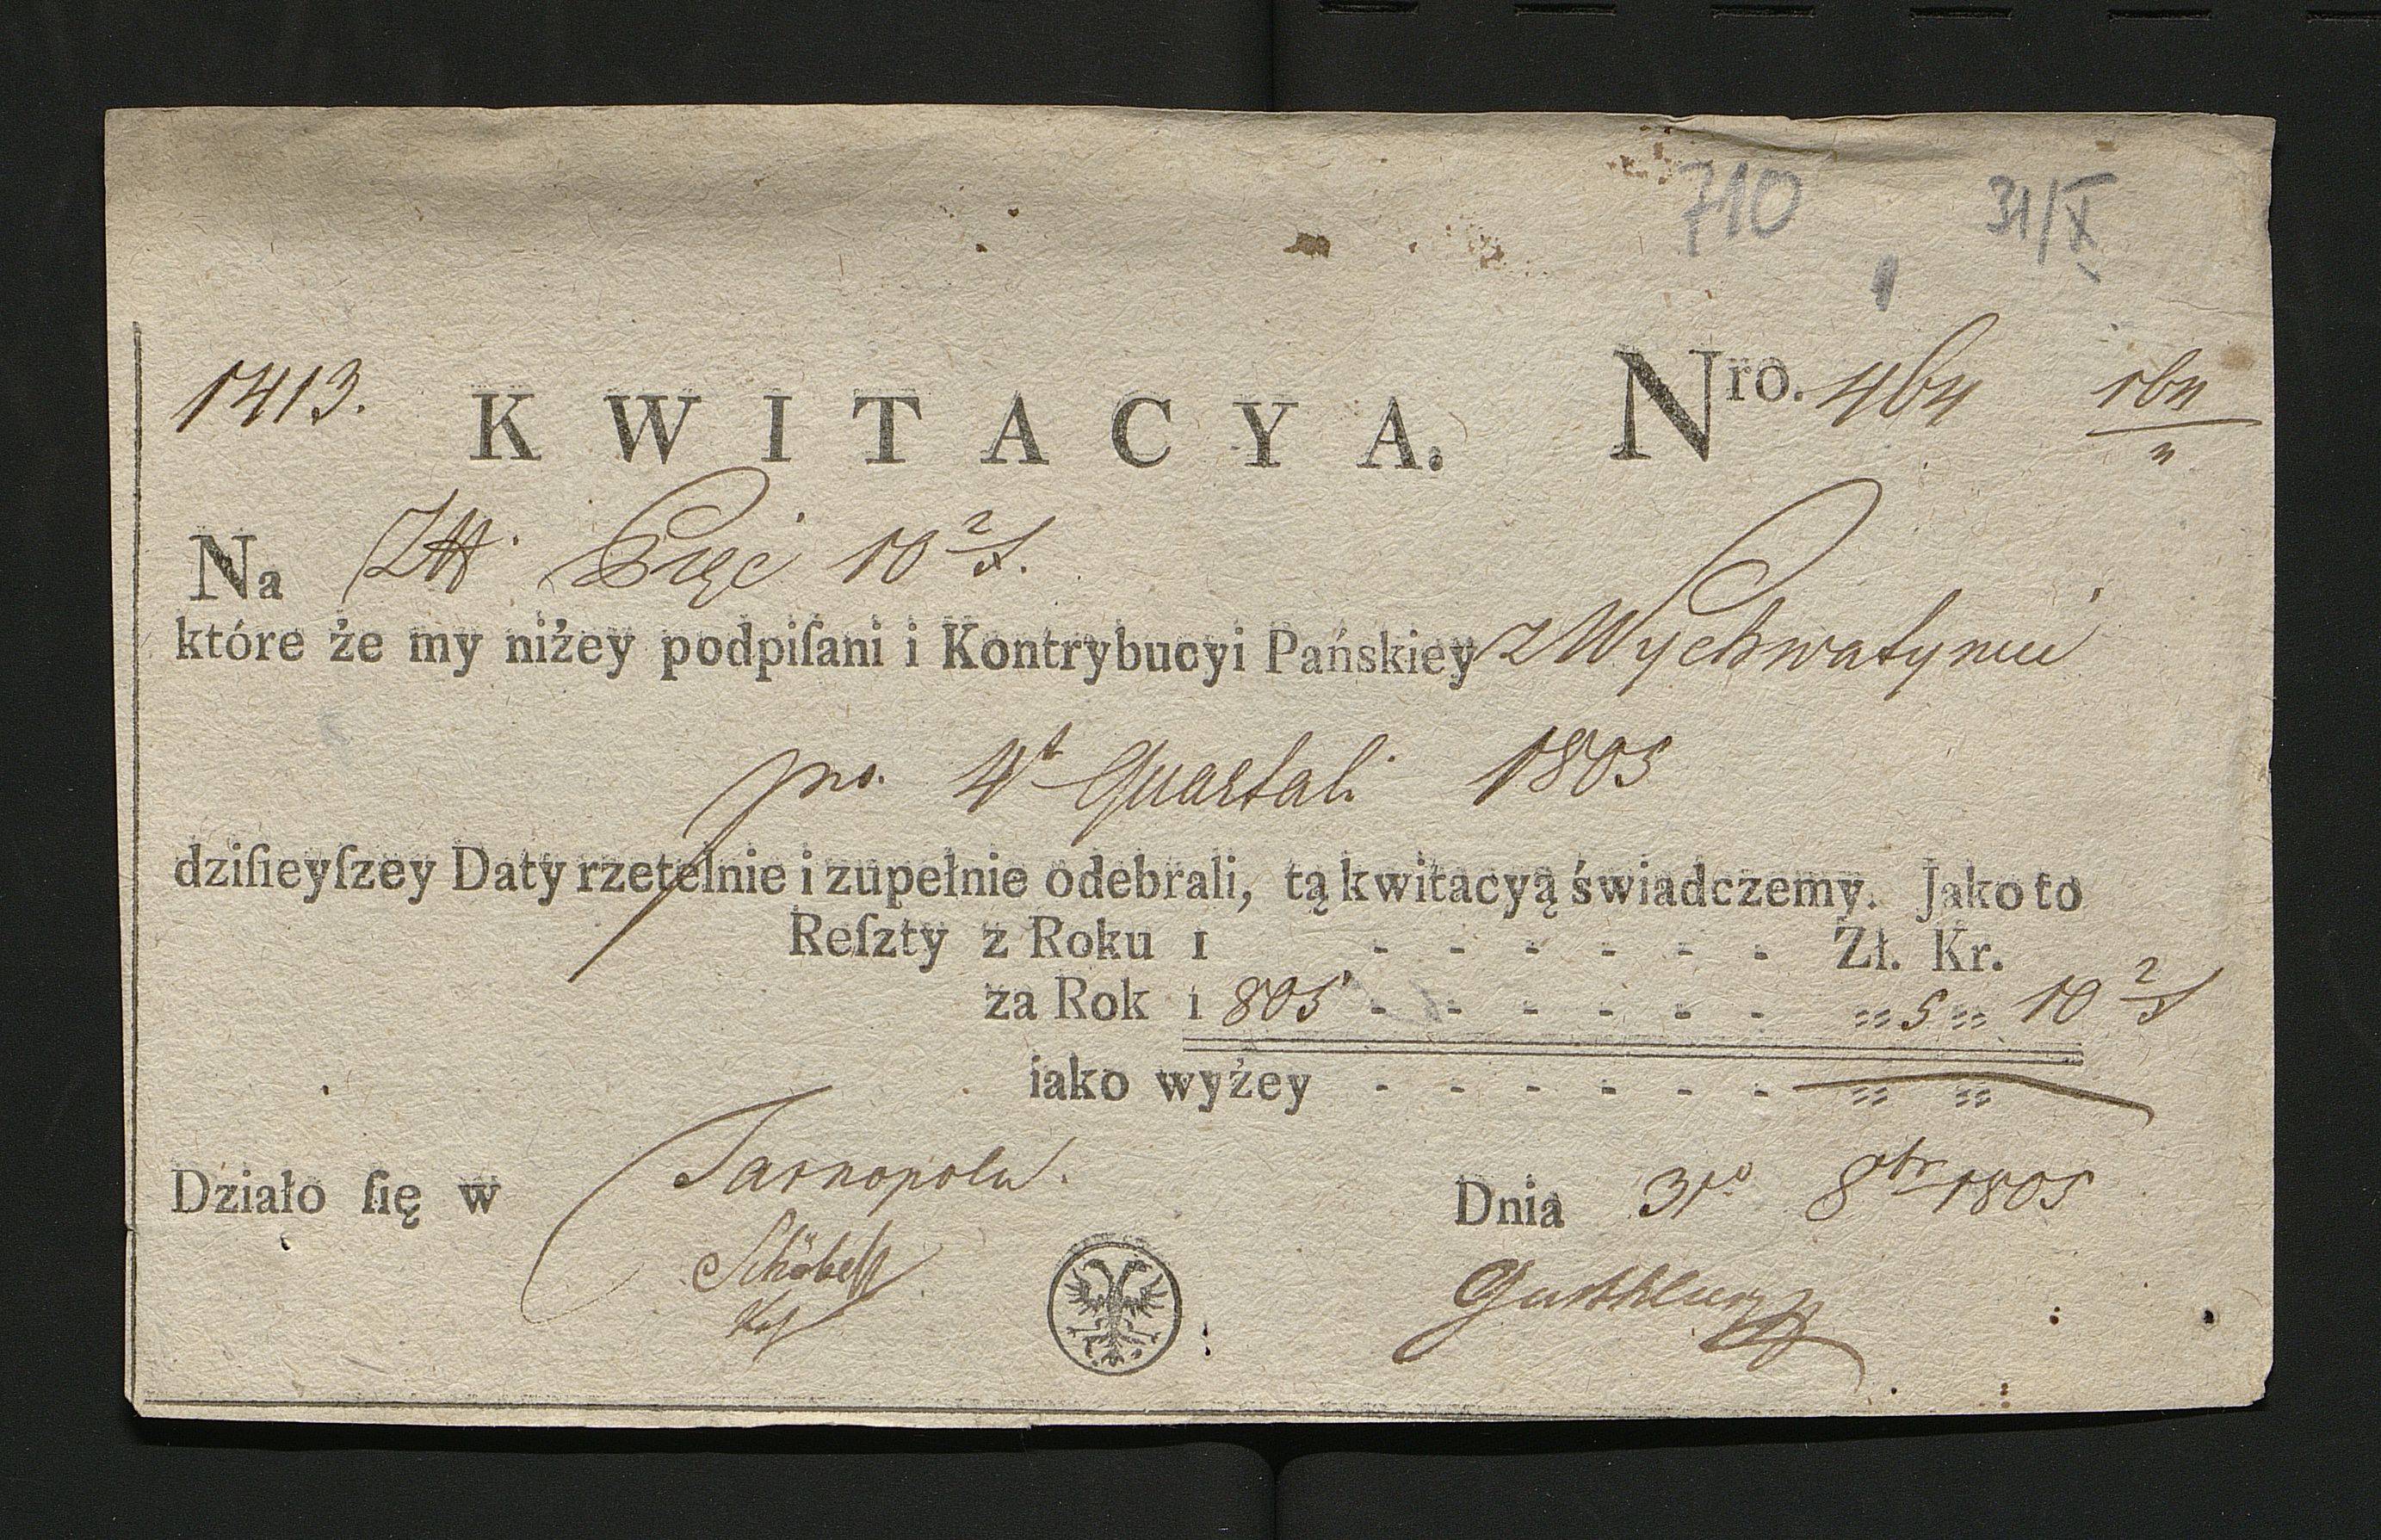 710 31/X
1413. KWITACYA. Nro. 464
Na Pięć 10 2/
które że my niżey podpiſani i Kontrybucyi Pańskiey z Wychwatyniu
pro. 4t Quartali 1805
dziſieyſzey Daty rzetelnie i zupełnie odebrali, tą kwitacyą świadczemy. Jako to
Reſzty z Roku 1 - - - - - - Zł. Kr.
za Rok 1805 - - - - - - 5 10 2/
iako wyżey - - - - - -
Działo ſię w Tarnopolu. Dnia 31o 8br 1805